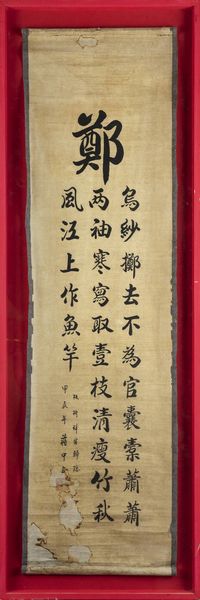 鄭
烏紗擲去不為官囊橐蕭蕭
两袖寒寫取壹枝清瘦竹秋
風江上作魚竿
甲辰年 蔣中